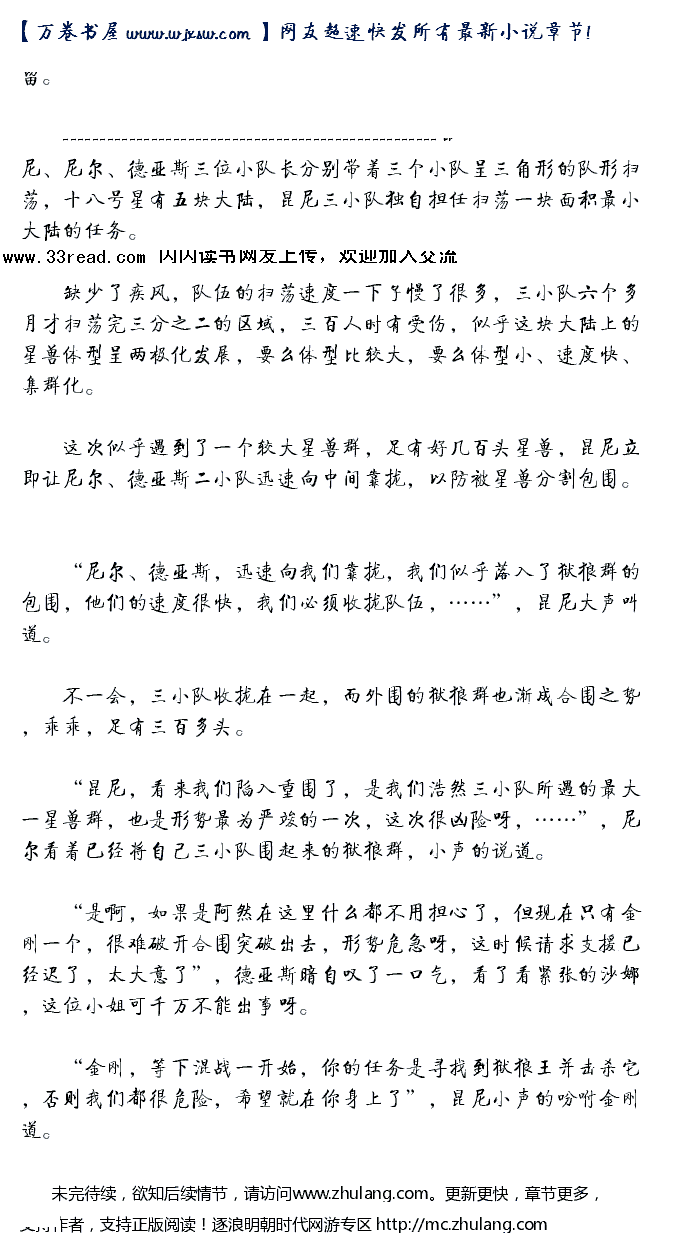 【 万卷书屋 www.wjxsw.com 】网友超速快发所有最新小说章节!
留。
尼、尼尔、德亚斯三位小队长分别带着三个小队呈三角形的队形扫
荡，十八号星有五块大陆，昆尼三小队独自担任扫荡一块面积最小
大陆的任务。
www.33read.com 闪闪读书网友上传，欢迎加入交流
缺少了疾风，队伍的扫荡速度一下子慢了很多，三小队六个多
月才扫荡完三分之二的区域，三百人时有受伤，似乎这块大陆上的
星兽体型呈两极化发展，要么体型比较大，要么体型小、速度快、
集群化。
这次似乎遇到了一个较大星兽群，足有好几百头星兽，昆尼立
即让尼尔、德亚斯二小队迅速向中间靠拢，以防被星兽分割包围。
“尼尔、德亚斯，迅速向我们靠拢，我们似乎落入了狱狼群的
包围，他们的速度很快，我们必须收拢队伍，……”，昆尼大声叫
道。
不一会，三小队收拢在一起，而外围的狱狼群也渐成合围之势
，乖乖，足有三百多头。
“昆尼，看来我们陷入重围了，是我们浩然三小队所遇的最大
一星兽群，也是形势最为严竣的一次，这次很凶险呀，……”，尼
尔看着已经将自己三小队围起来的狱狼群，小声的说道。
“是啊，如果是阿然在这里什么都不用担心了，但现在只有金
刚一个，很难破开合围突破出去，形势危急呀，这时候请求支援已
经迟了，太大意了”，德亚斯暗自叹了一口气，看了看紧张的沙娜
，这位小姐可千万不能出事呀。
“金刚，等下混战一开始，你的任务是寻找到狱狼王并击杀它
，否则我们都很危险，希望就在你身上了”，昆尼小声的吩咐金刚
道。
未完待续，欲知后续情节，请访问www.zhulang.com。更新更快，章节更多，
支持作者，支持正版阅读！逐浪明朝时代网游专区 http://mc.zhulang.com